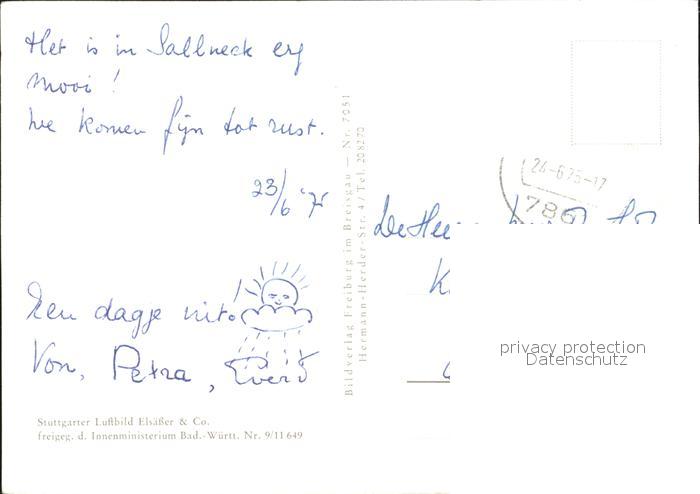 Het is in Sallneck erg
mooi!
We komen fijn tot rust.
23/6 '75
Een dagje uit!
Von, Petra, Evert
Stuttgarter Luftbild Elsäßer & Co.
freigeg. d. Innenministerium Bad.-Württ. Nr. 9/11 649
Bildverlag Freiburg im Breisgau — Nr. 7051
Hermann-Herder-Str. 4 / Tel. 208270
24-6.75-17
786
De Hee
privacy protection
Datenschutz